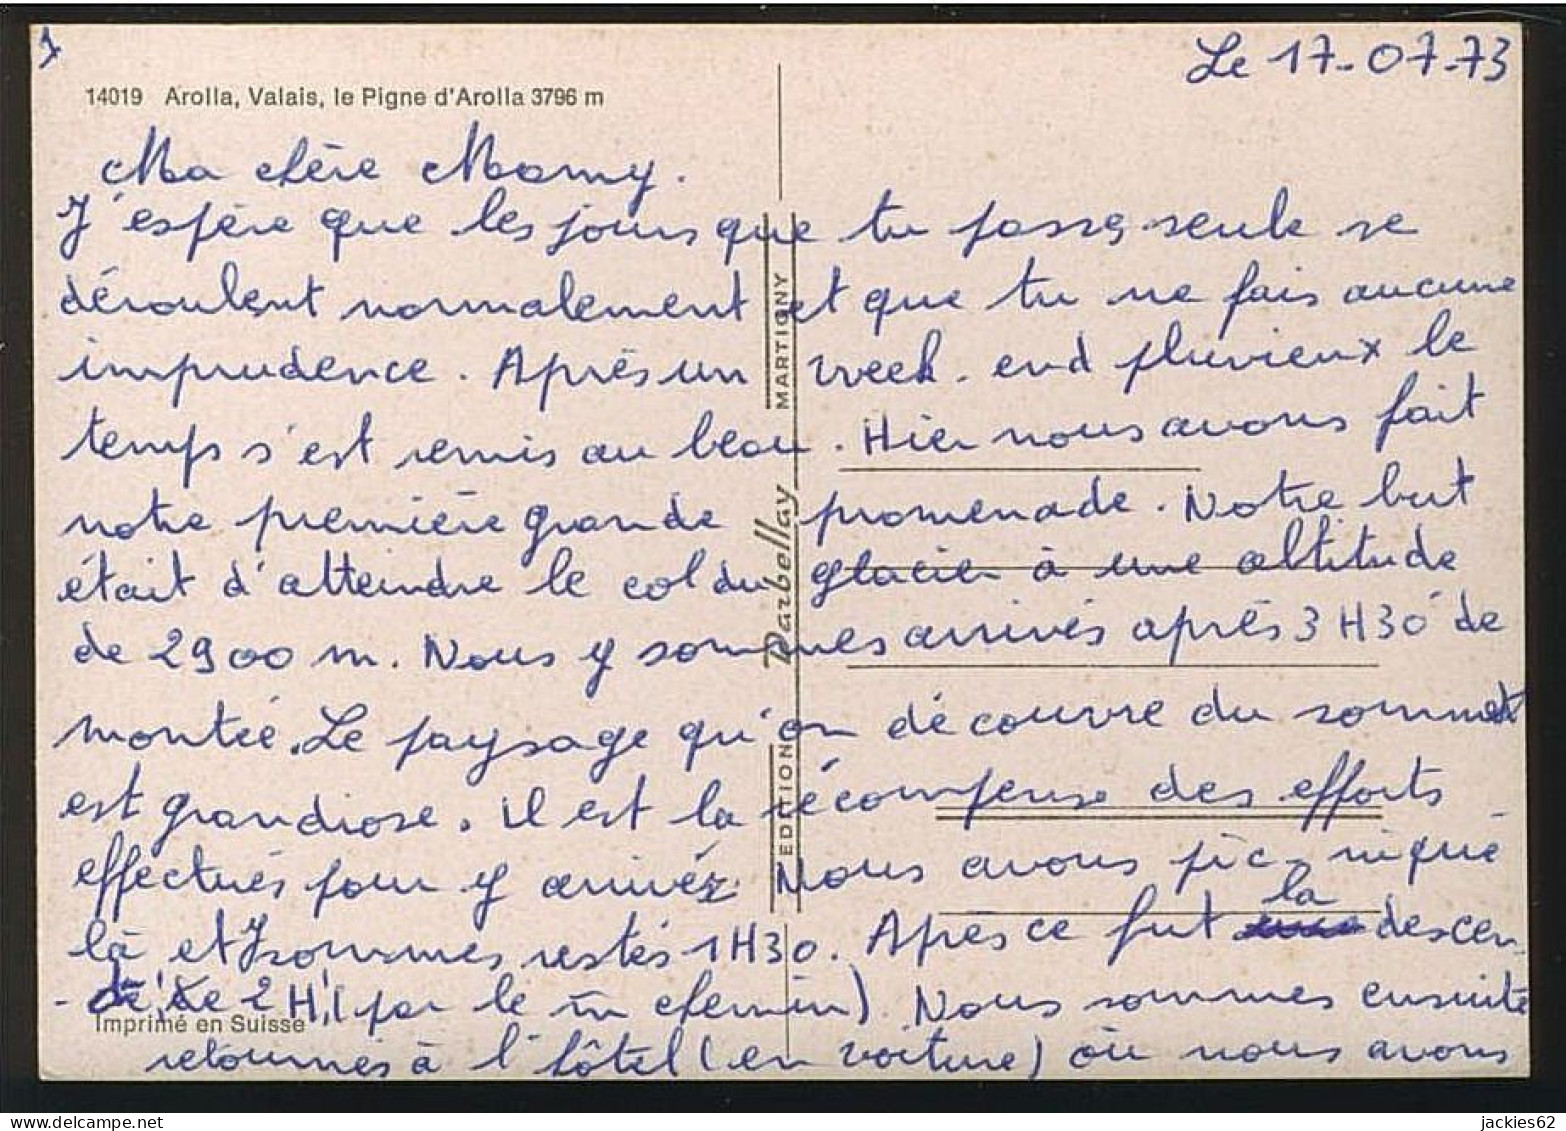 1
Le 17-07-73
14019 Arolla, Valais, le Pigne d'Arolla 3796 m
Ma chère Mamy.
J'espère que les jours que tu passes seule se
déroulent normalement et que tu ne fais aucune
imprudence. Après un week-end pluvieux le
temps s'est remis au beau. Hier nous avons fait
notre première grande promenade. Notre but
était d'atteindre le col du glacier à une altitude
de 2900 m. Nous y sommes arrivés après 3H30 de
montée. Le paysage qu'on découvre du sommet
est grandiose. il est la récompense des efforts
effectués pour y arriver. Nous avons pic-niqué
là et y sommes restés 1H30. Après ce fut la descen-
-te de 2H! (par le m̄ chemin). Nous sommes ensuite
retournés à l'hôtel (en voiture) où nous avons
EDITION Darbellay MARTIGNY
Imprimé en Suisse
jackies62